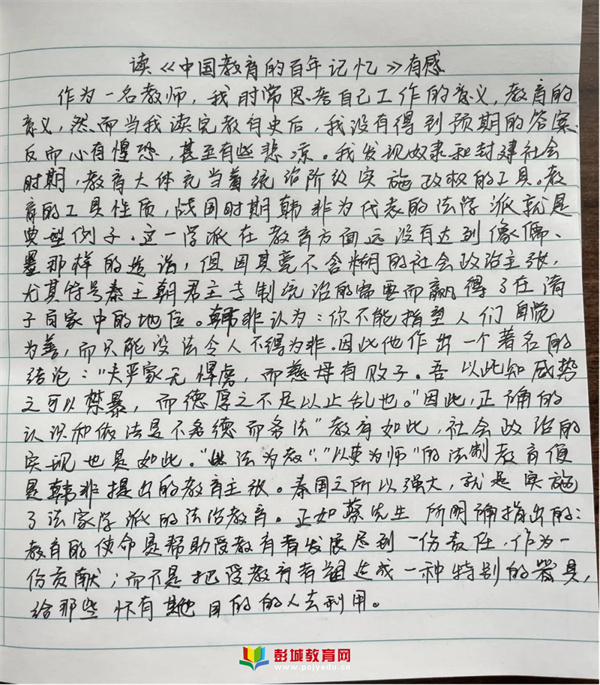 读《中国教育的百年记忆》有感
作为一名教师，我时常思考自己工作的意义，教育的
意义，然而当我读完教育史后，我没有得到预期的答案
反而心有惶恐，甚至有些悲凉。我发现奴隶和封建社会
时期，教育大体充当着统治阶级实施政权的工具。教
育的工具性质，战国时期韩非为代表的法学派就是
典型例子。这一学派在教育方面远没有达到像儒、
墨那样的造诣，但因其毫不含糊的社会政治主张，
尤其符号秦王朝君主专制统治的需要而赢得了在诸
子百家中的地位。韩非认为：你不能指望人们自觉
为善，而只能设法令人不得为非。因此他作出一个著名的
结论："夫严家无悍虏，而慈母有败子。吾以此知威势
之可以禁暴，而德厚之不足以止乱也。"因此，正确的
认识和做法是不务德而务法"教育如此，社会政治的
实现也是如此。"以法为教"，"以吏为师"的法制教育值
是韩非提出的教育主张。秦国之所以强大，就是实施
了法家学派的法治教育。正如蔡先生所明确指出的：
教育的使命是帮助受教育者发展尽到一份责任，作为一
份贡献；而不是把受教育者造成一种特别的器具，
给那些怀有其他目的的人去利用。
彭城教育网
www.pcjyedu.cn